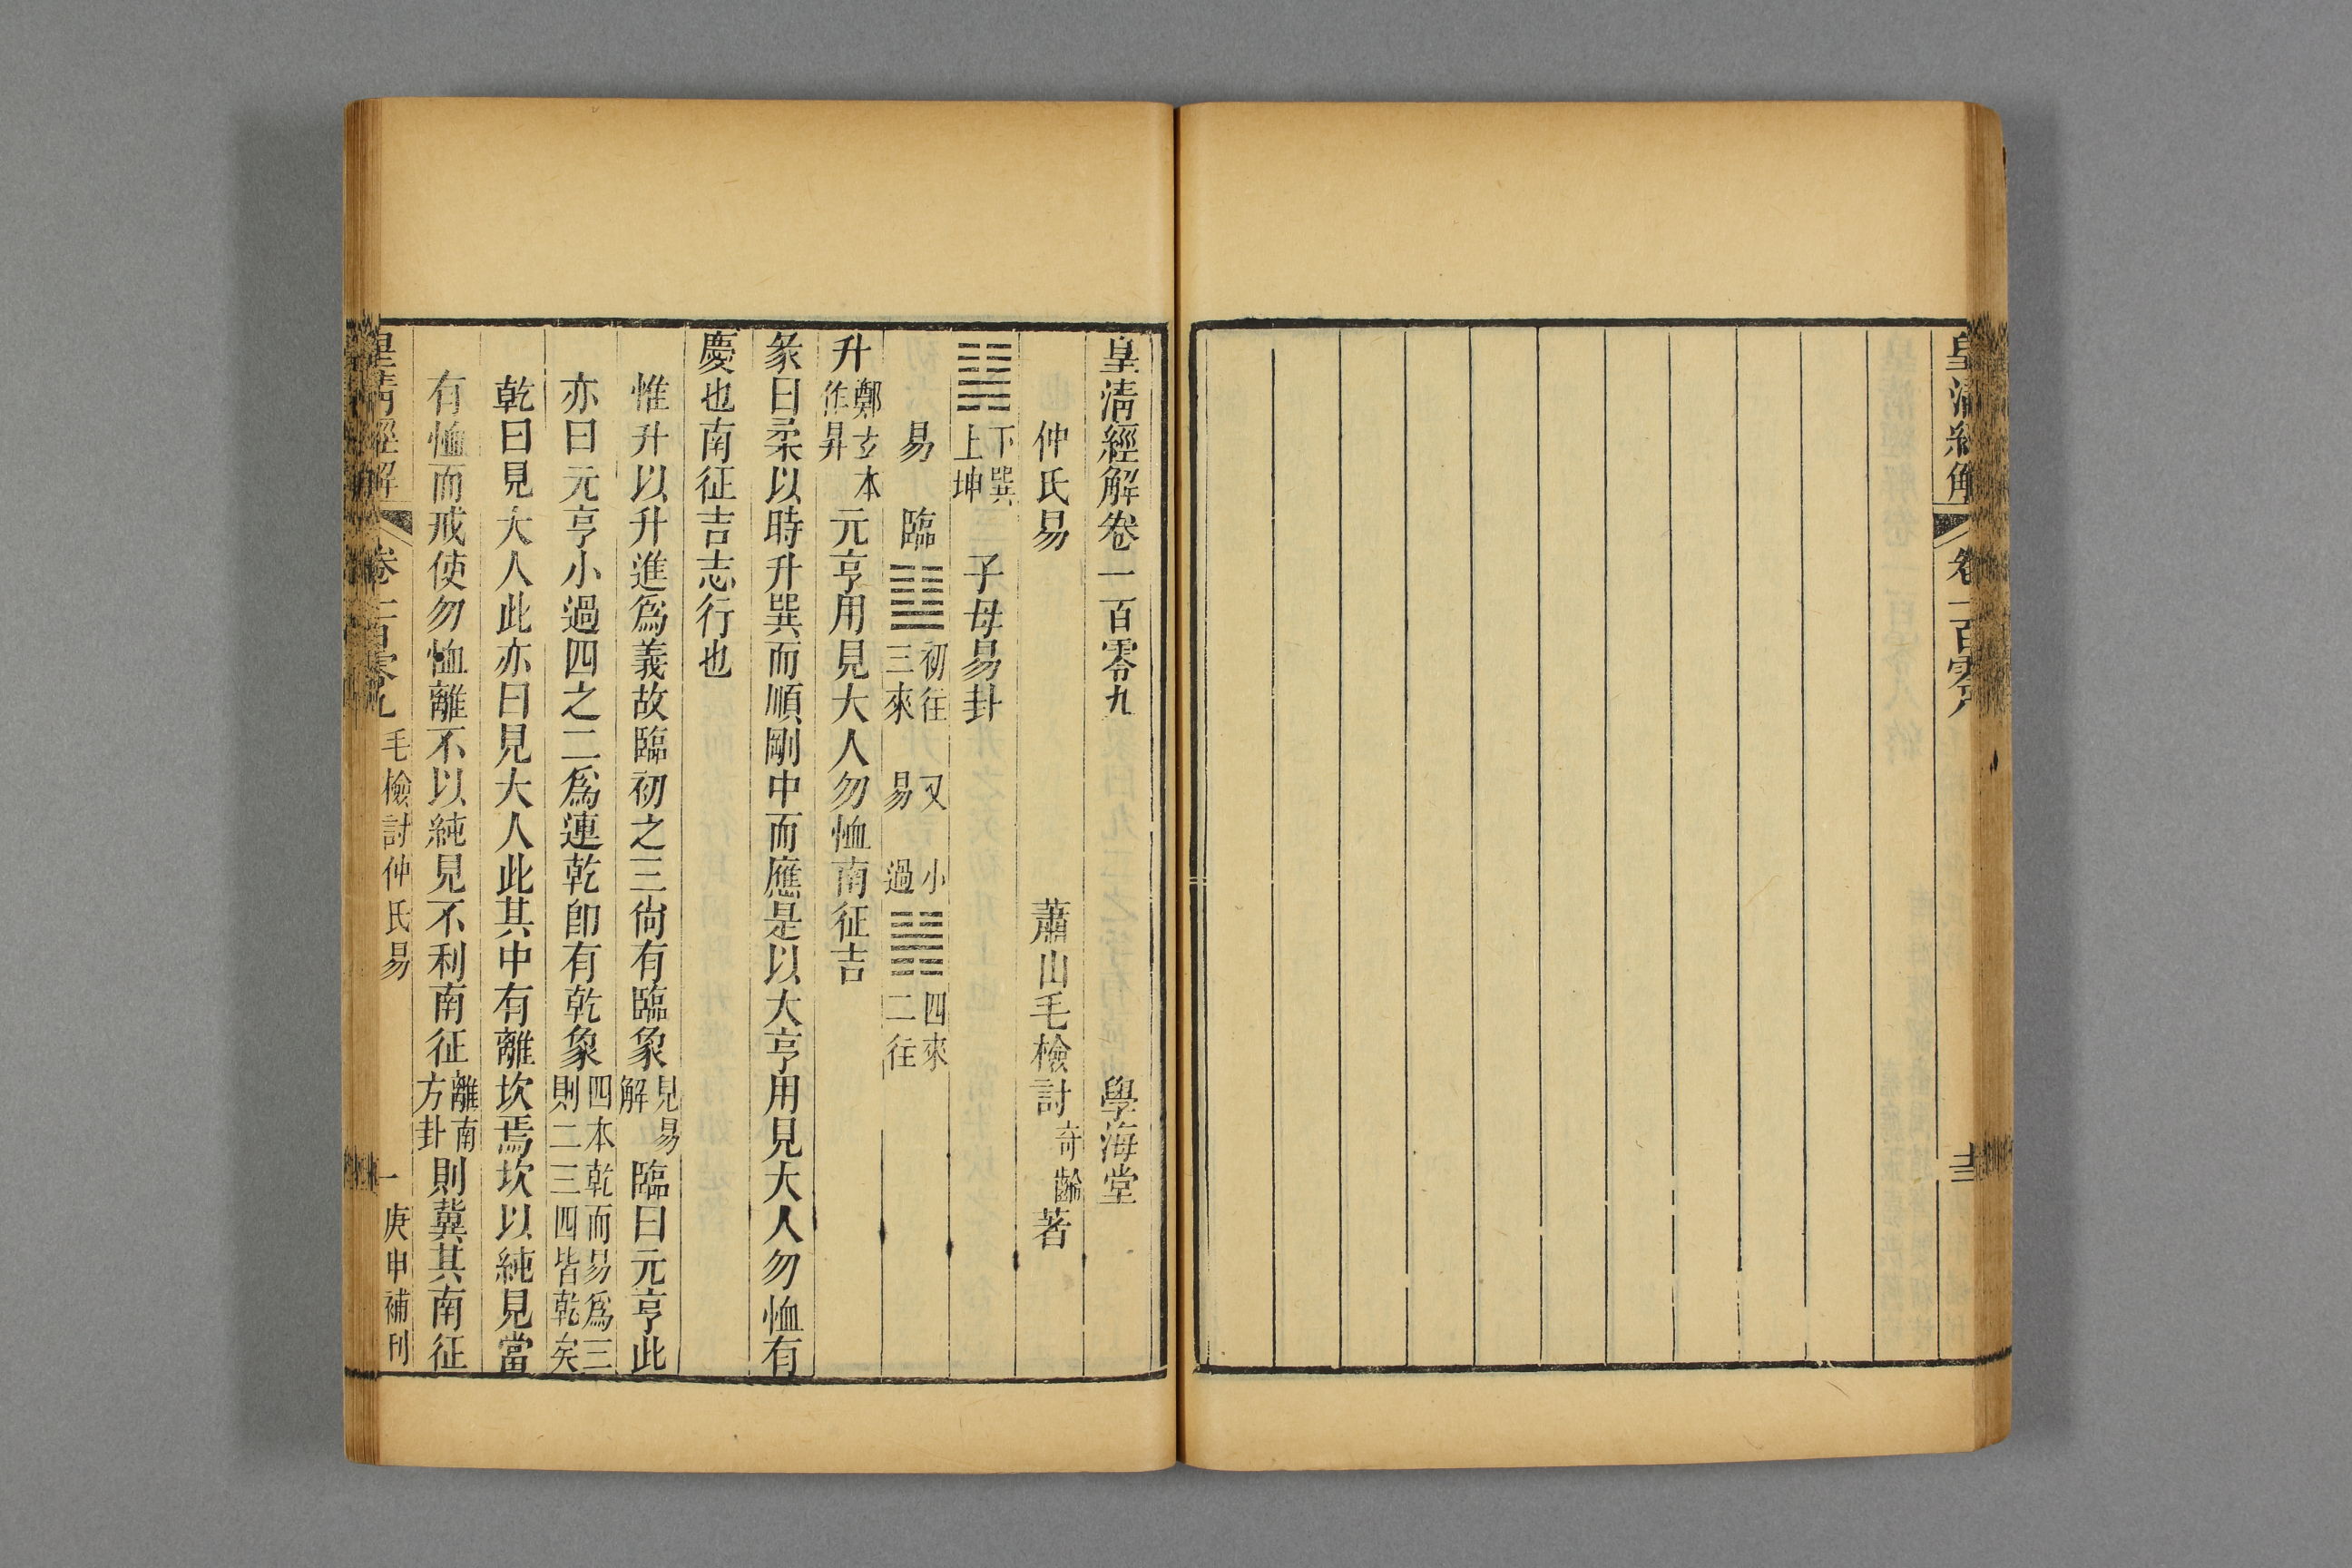 皇清經解
皇清經解卷一百零九 學海堂
仲氏易 蕭山毛檢討奇齡著
䷭下巽上坤 子母易卦
易 臨䷒初往三來 又易 小過䷽四來二往
升鄭玄本作昇元亨用見大人勿恤南征吉
彖曰柔以時升巽而順剛中而應是以大亨用見大人勿恤有
慶也南征吉志行也
惟升以升進為義故臨初之三尙有臨象見易解臨曰元亨此
亦曰元亨小過四之二為連乾卽有乾象四本乾而易為三則二三四皆乾矣
乾曰見大人此亦曰見大人此其中有離坎焉坎以純見當
有恤而戒使勿恤離不以純見不利南征離南方卦則冀其南征
皇清經解 卷一百零九 毛檢討仲氏易 一 庚申補刊